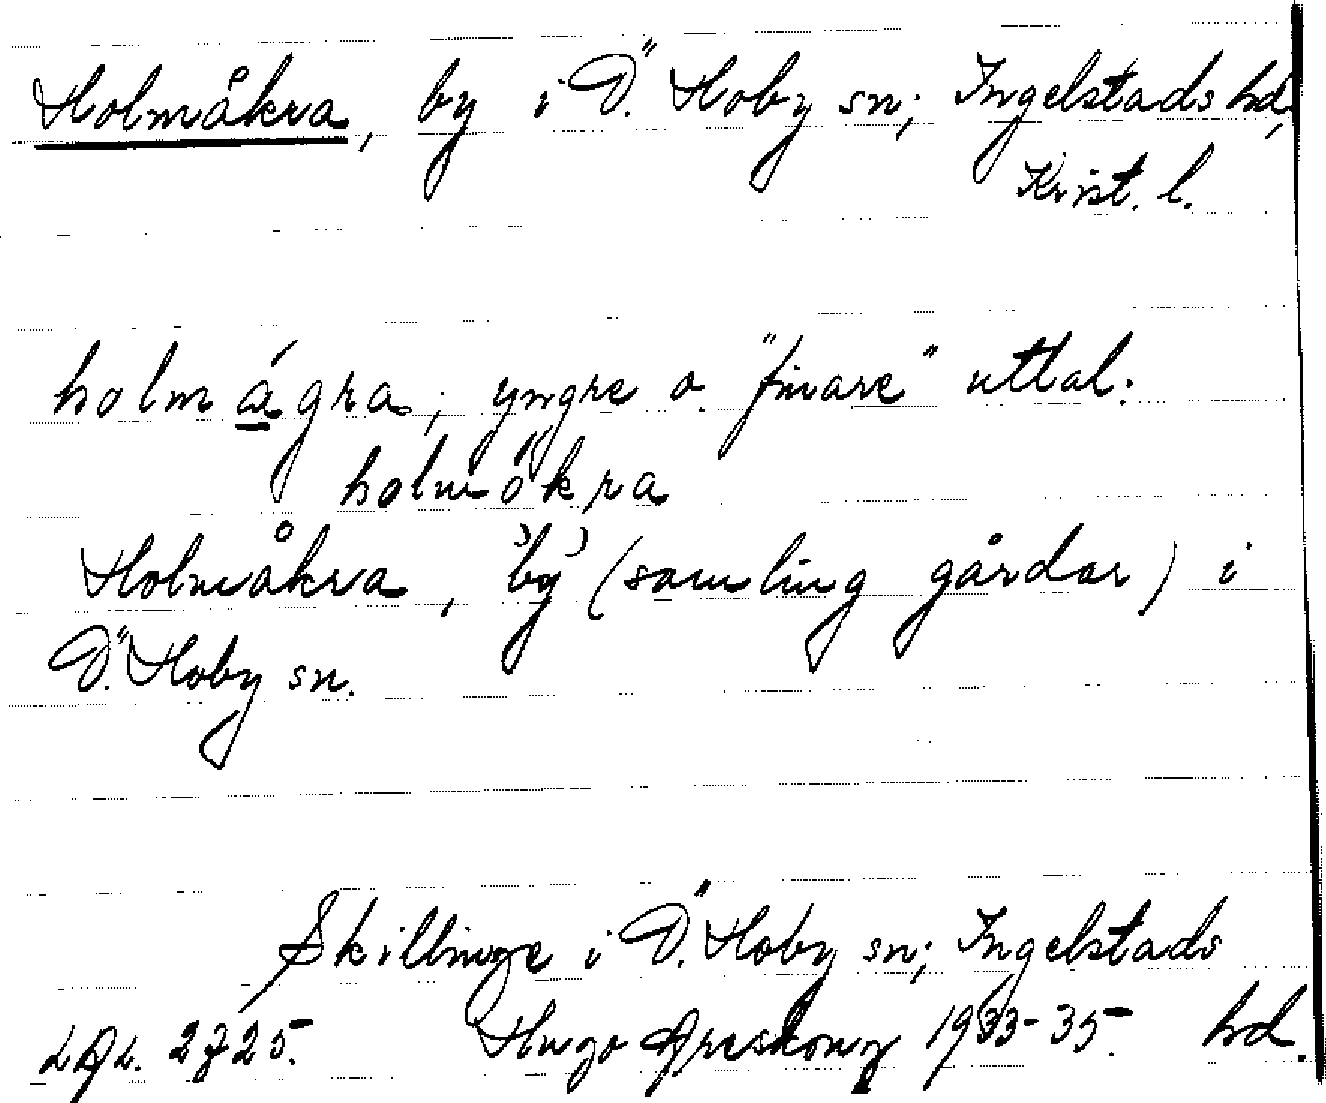 Holmåkra, by i Ö. Hoby sn; Ingelstads hd,
Krist. l.
holmágra; yngre o. "finare" uttal:
holmökra
Holmåkra, by (samling gårdar) i
Ö. Hoby sn.
Skillinge i Ö. Hoby sn; Ingelstads
hd.
LAL. 2725. Hugo Areskoug 1933-35.